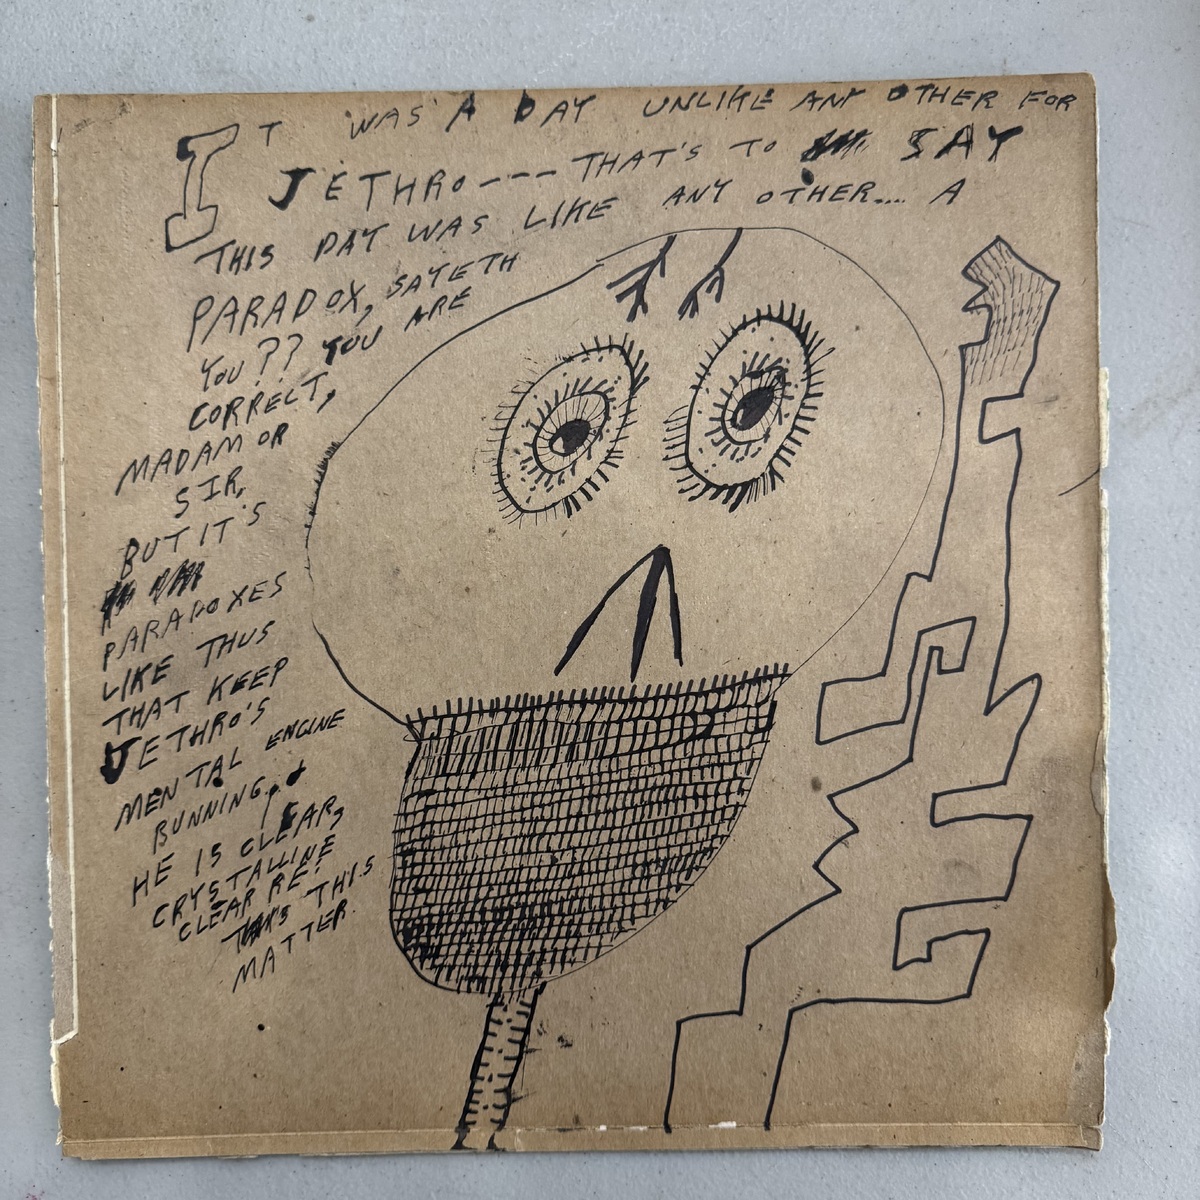 IT WAS A DAY UNLIKE ANY OTHER FOR
JETHRO --- THAT'S TO SAY
THIS DAY WAS LIKE ANY OTHER.... A
PARADOX, SAYETH
YOU?? YOU ARE
CORRECT,
MADAM OR
SIR,
BUT IT'S
PARADOXES
LIKE THUS
THAT KEEP
JETHRO'S
MENTAL ENGINE
RUNNING...
HE IS CLEAR,
CRYSTALLINE
CLEAR RE:
THIS
MATTER